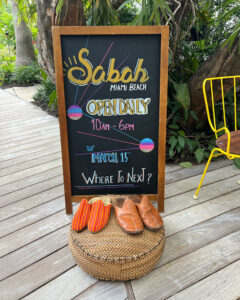 Sabah
MIAMI BEACH
OPEN DAILY
10AM - 6PM
MARCH 15
WHERE TO NEXT?